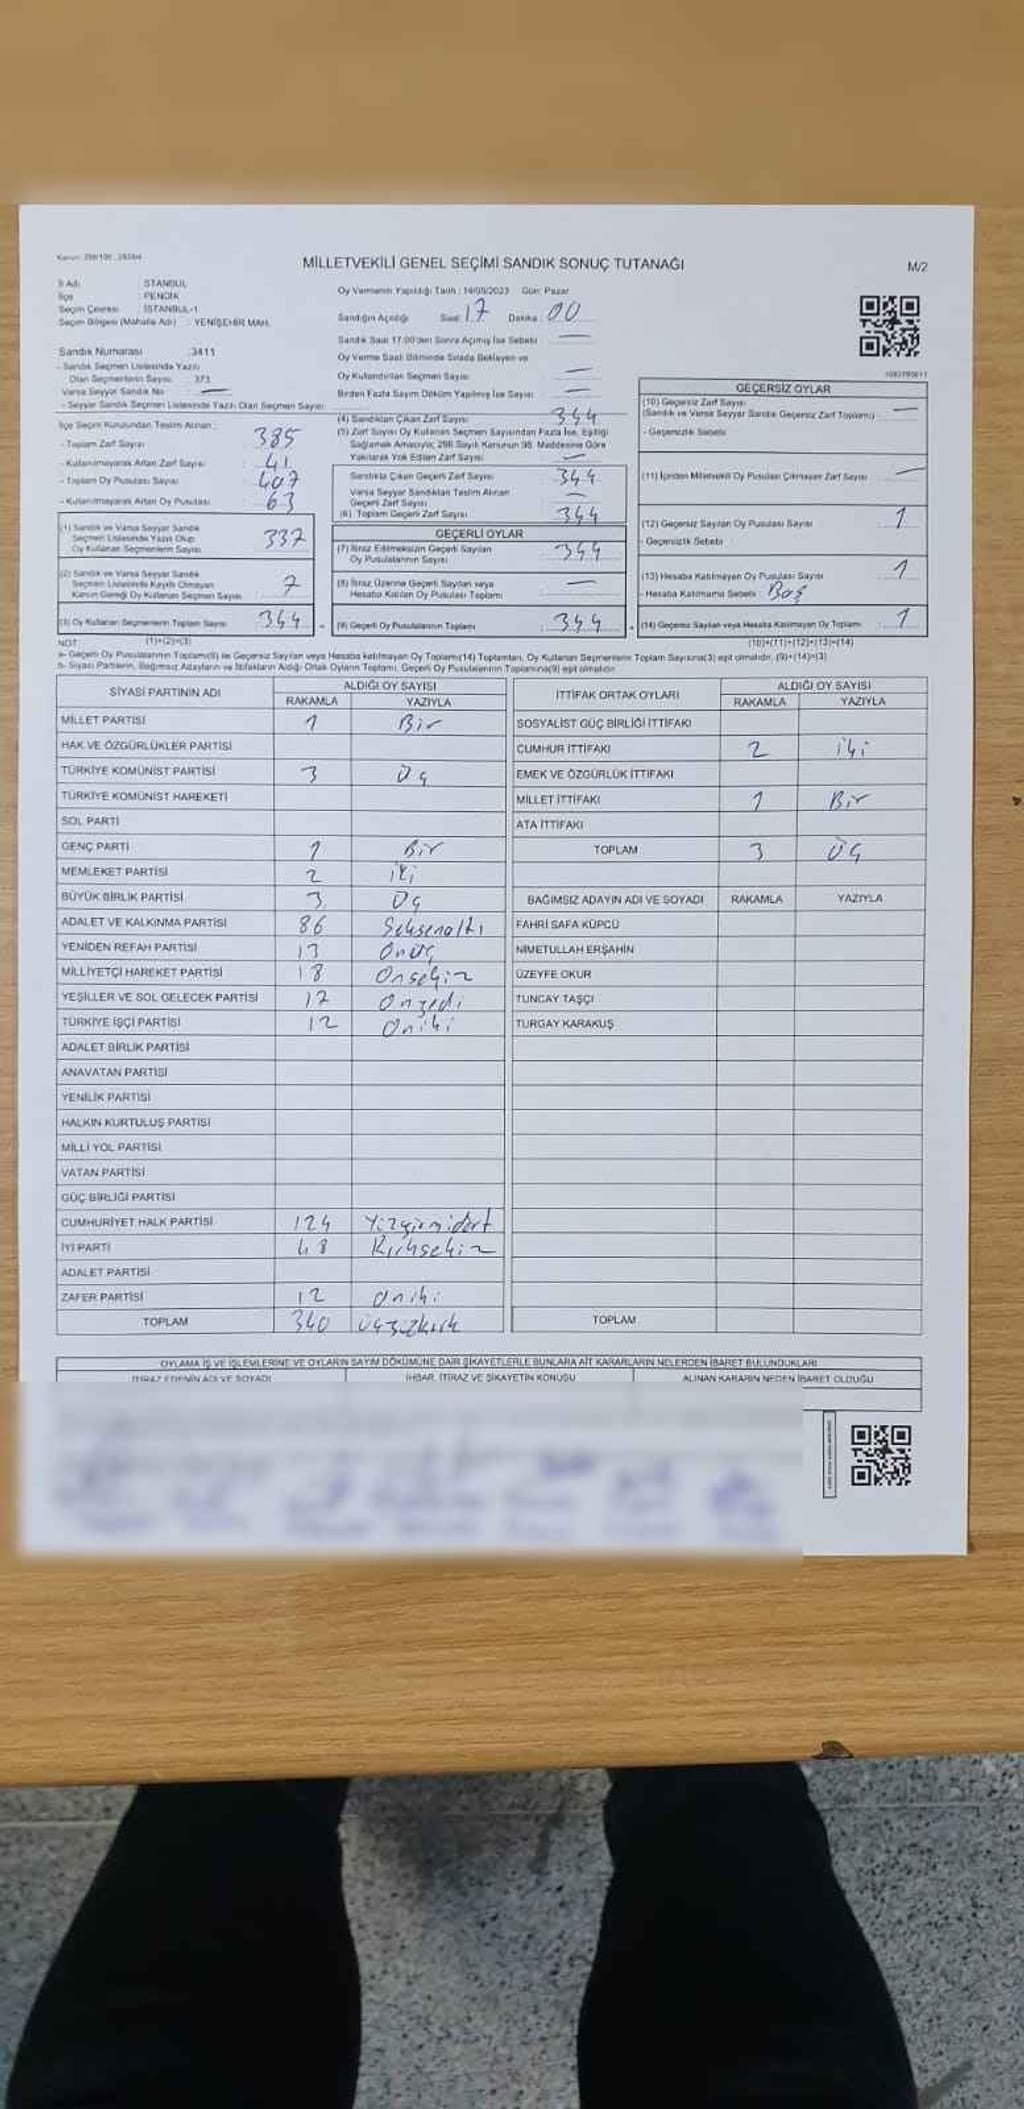 MİLLETVEKİLİ GENEL SEÇİMİ SANDIK SONUÇ TUTANAĞI
M/2
İl Adı : STANBUL
İlçe : PENDİK
Seçim Çevresi : İSTANBUL-1
Seçim Bölgesi (Mahalle Adı) : YENİŞEHİR MAH.
Sandık Numarası : 3411
- Sandık Seçmen Listesinde Yazılı
Olan Seçmenlerin Sayısı : 373
Varsa Seyyar Sandık No : —
- Seyyar Sandık Seçmen Listesinde Yazılı Olan Seçmen Sayısı:
İlçe Seçim Kurulundan Teslim Alınan :
- Toplam Zarf Sayısı : 385
- Kullanılmayarak Artan Zarf Sayısı : 41
- Toplam Oy Pusulası Sayısı : 407
- Kullanılmayarak Artan Oy Pusulası : 63
(1) Sandık ve Varsa Seyyar Sandık
Seçmen Listesinde Yazılı Olup
Oy Kullanan Seçmenlerin Sayısı : 337
(2) Sandık ve Varsa Seyyar Sandık
Seçmen Listesinde Kayıtlı Olmayan
Kanun Gereği Oy Kullanan Seçmen Sayısı : 7
(3) Oy Kullanan Seçmenlerin Toplam Sayısı : 344
Oy Vermenin Yapıldığı Tarih : 14/05/2023 Gün: Pazar
Sandığın Açıldığı Saat : 17 Dakika : 00
Sandık Saat 17:00'den Sonra Açılmış İse Sebebi : —
Oy Verme Saati Bitiminde Sırada Bekleyen ve
Oy Kullandırılan Seçmen Sayısı : —
Birden Fazla Sayım Döküm Yapılmış İse Sayısı : —
(4) Sandıktan Çıkan Zarf Sayısı : 344
(5) Zarf Sayısı Oy Kullanan Seçmen Sayısından Fazla İse, Eşitliği
Sağlamak Amacıyla; 298 Sayılı Kanunun 98. Maddesine Göre
Yakılarak Yok Edilen Zarf Sayısı : —
Sandıkta Çıkan Geçerli Zarf Sayısı : 344
Varsa Seyyar Sandıktan Teslim Alınan
Geçerli Zarf Sayısı : —
(6) Toplam Geçerli Zarf Sayısı : 344
GEÇERLİ OYLAR
(7) İtiraz Edilmeksizin Geçerli Sayılan
Oy Pusulalarının Sayısı : 344
(8) İtiraz Üzerine Geçerli Sayılan veya
Hesaba Katılan Oy Pusulası Toplamı : —
(9) Geçerli Oy Pusulalarının Toplamı : 344
GEÇERSİZ OYLAR
(10) Geçersiz Zarf Sayısı
(Sandık ve Varsa Seyyar Sandık Geçersiz Zarf Toplamı) : —
- Geçersizlik Sebebi :
(11) İçinden Milletvekili Oy Pusulası Çıkmayan Zarf Sayısı : —
(12) Geçersiz Sayılan Oy Pusulası Sayısı : 1
- Geçersizlik Sebebi :
(13) Hesaba Katılmayan Oy Pusulası Sayısı : 1
- Hesaba Katılmama Sebebi : Boş
(14) Geçersiz Sayılan veya Hesaba Katılmayan Oy Toplamı : 1
NOT: (1)+(2)=(3) (10)+(11)+(12)+(13)=(14)
a- Geçerli Oy Pusulalarının Toplamı(9) ile Geçersiz Sayılan veya Hesaba katılmayan Oy Toplamı(14) Toplamları, Oy Kullanan Seçmenlerin Toplam Sayısına(3) eşit olmalıdır. (9)+(14)=(3)
b- Siyasi Partilerin, Bağımsız Adayların ve İttifakların Aldığı Ortak Oyların Toplamı, Geçerli Oy Pusulalarının Toplamına(9) eşit olmalıdır.
SİYASİ PARTİNİN ADI ALDIĞI OY SAYISI
RAKAMLA YAZIYLA
MİLLET PARTİSİ 1 Bir
HAK VE ÖZGÜRLÜKLER PARTİSİ
TÜRKİYE KOMÜNİST PARTİSİ 3 Üç
TÜRKİYE KOMÜNİST HAREKETİ
SOL PARTİ
GENÇ PARTİ 1 Bir
MEMLEKET PARTİSİ 2 iki
BÜYÜK BİRLİK PARTİSİ 3 Üç
ADALET VE KALKINMA PARTİSİ 86 Seksenaltı
YENİDEN REFAH PARTİSİ 13 Onüç
MİLLİYETÇİ HAREKET PARTİSİ 18 Onsekiz
YEŞİLLER VE SOL GELECEK PARTİSİ 17 Onyedi
TÜRKİYE İŞÇİ PARTİSİ 12 Oniki
ADALET BİRLİK PARTİSİ
ANAVATAN PARTİSİ
YENİLİK PARTİSİ
HALKIN KURTULUŞ PARTİSİ
MİLLİ YOL PARTİSİ
VATAN PARTİSİ
GÜÇ BİRLİĞİ PARTİSİ
CUMHURİYET HALK PARTİSİ 124 Yüzyirmidört
İYİ PARTİ 48 Kırksekiz
ADALET PARTİSİ
ZAFER PARTİSİ 12 Oniki
TOPLAM 340 üçyüzkırk
İTTİFAK ORTAK OYLARI ALDIĞI OY SAYISI
RAKAMLA YAZIYLA
SOSYALİST GÜÇ BİRLİĞİ İTTİFAKI
CUMHUR İTTİFAKI 2 iki
EMEK VE ÖZGÜRLÜK İTTİFAKI
MİLLET İTTİFAKI 1 Bir
ATA İTTİFAKI
TOPLAM 3 ÜÇ
BAĞIMSIZ ADAYIN ADI VE SOYADI RAKAMLA YAZIYLA
FAHRİ SAFA KÜPCÜ
NİMETULLAH ERŞAHİN
ÜZEYFE OKUR
TUNCAY TAŞÇI
TURGAY KARAKUŞ
TOPLAM
OYLAMA İŞ VE İŞLEMLERİNE VE OYLARIN SAYIM DÖKÜMÜNE DAİR ŞİKAYETLERLE BUNLARA AİT KARARLARIN NELERDEN İBARET BULUNDUKLARI
İTİRAZ EDENİN ADI VE SOYADI İHBAR, İTİRAZ VE ŞİKAYETİN KONUSU ALINAN KARARIN NEDEN İBARET OLDUĞU